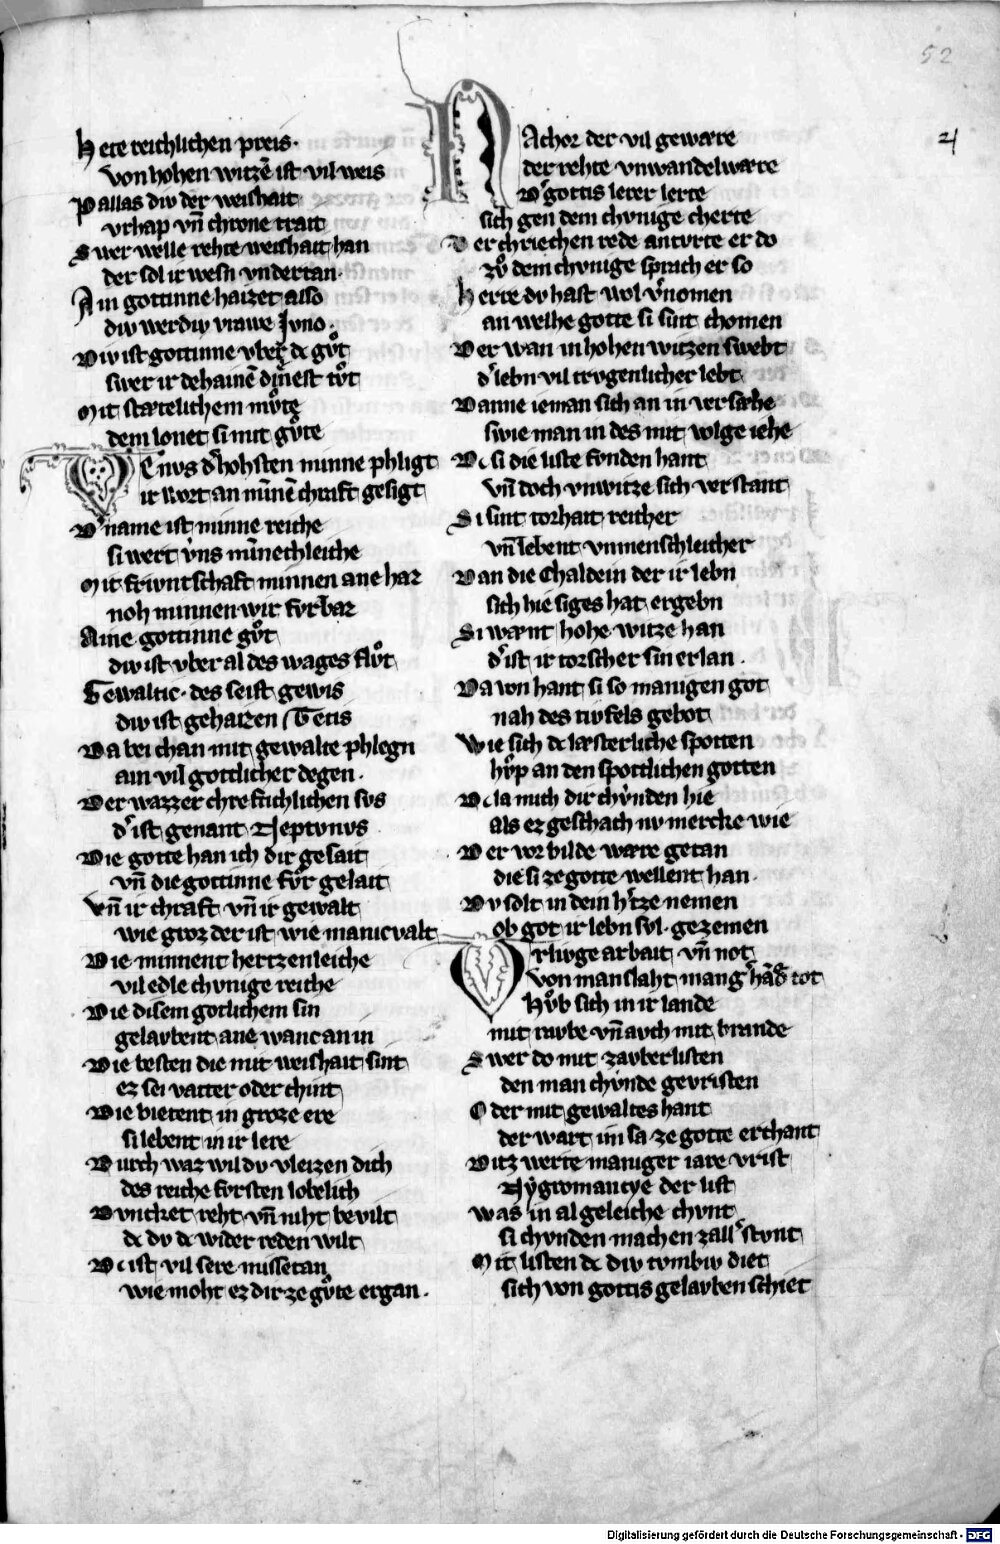 52
Hete reichlichen preis.
von hohen witzē ist vil weis
Pallas div der weishait
vrhap vn̄ chrone trait
Swer welle rehte weishait han
der sol ir wesn vndertan.
Ain gottinne haizet also
div werdiv vrawe Jvno.
Div ist gottinne vber dc gvͦt
swer ir dehainē diēnest tvͦt
Mit stætelichem mvͦte
dem lonet si mit gvͤte
Venvs dͬ hohsten minne phligt
ir wort an minnē chraft gesigt
Dͬ name ist minne reiche
si wert vns minnechleiche
Mit frivntschaft minnen ane haz
noh minnen wir fvrbaz
Aine gottinne gvͦt
div ist vber al des wages flvͦt
Gewaltic. des seist gewis
div ist gehaizen Tetis
Da bei chan mit gewalte phlegn
ain vil gottlicher degen.
Der wazzer chreftichlichen svs
dͬ ist genant Neptvnvs
Die gotte han ich dir gesait
vn̄ die gottinne fvͤr gelait
Vn̄ ir chraft vn̄ ir gewalt
wie groz der ist wie manicvalt
Die minnent hertzenleiche
vil edle chvnige reiche
Die disem gotlichem sin
gelavbent ane wanc an in
Die besten die mit weishait sint
ez sei vatter oder chint
Die bietent in groze ere
si lebent in ir lere
Dvrch waz wil dv vleizen dich
des reiche fvrsten lobelich
Dvnchet reht vn̄ niht bevilt
dc dv dc wider reden wilt
Dc ist vil sere missetan
wie moht ez dir ze gvͤte ergan.
Nachor der vil gewære
der rehte vnwandelwære
Dͬ gottis lerer lerte
sich gen dem chvnige cherte
Der chriechen rede antvrte er do
zvͦ dem chvnige sprach er so
Herre dv hast wol vͬnomen
an welhe gotte si sint chomen
Der wan in hohen witzen swebt
dͬ lebn vil trvgenlicher lebt
Danne ieman sich an in versæhe
swie man in des mit volge iehe
Dc si die liste fvnden hant
vn̄ doch vnwitze sich verstant
Si sint torhait reicher
vn̄ lebent vnmenschleicher
Dan die Chaldein der ir lebn
sich hie siges hat ergebn
Si wænt hohe witze han
dͬ ist ir torscher sin erlan.
Da von hant si so manigen got
nah des tivfels gebot
Wie sich dc læsterliche spotten
hvͤp an den spottlichen gotten
Dc la mich dir chvnden hie
als ez geschach nv mercke wie
Der vor bilde wære getan
die si ze gotte wellent han.
Dv solt in dein hͬtze nemen
ob got ir lebn svl. gezemen
Vrlivge arbait vn̄ not
von manslaht
Hvͦb sich in ir lande
mit ravbe vn̄ avch mit brande
Swer do mit zavberlisten
den man chvnde gevristen
Oder mit gewaltes hant
der wart im sa ze gotte erchant
Ditz werte maniger iare vrist
Nygromancye der list
Was in al geleiche chvnt
si chvnden machen zallͬ stvnt
Mit listen dc div tvmbiv diet
sich von gottis gelavben schiet
Digitalisierung gefördert durch die Deutsche Forschungsgemeinschaft - DFG